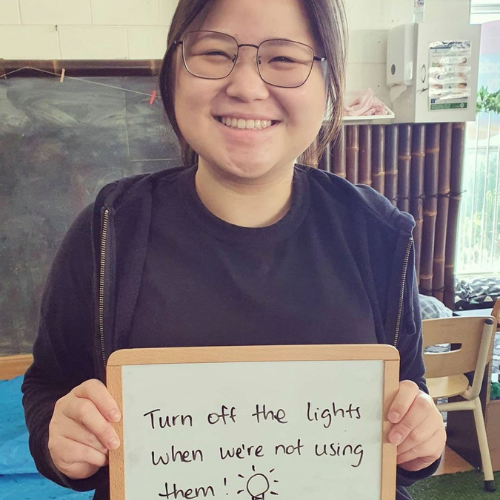 Turn off the lights
when we're not using
them!